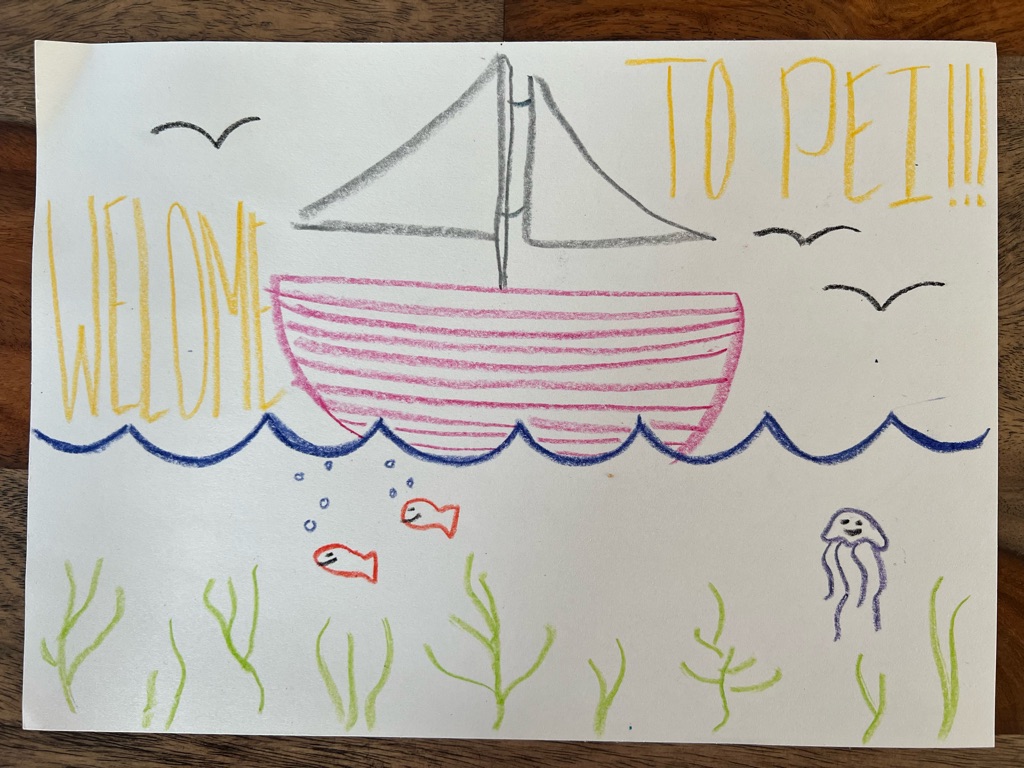 WELOME
TO PEI!!!